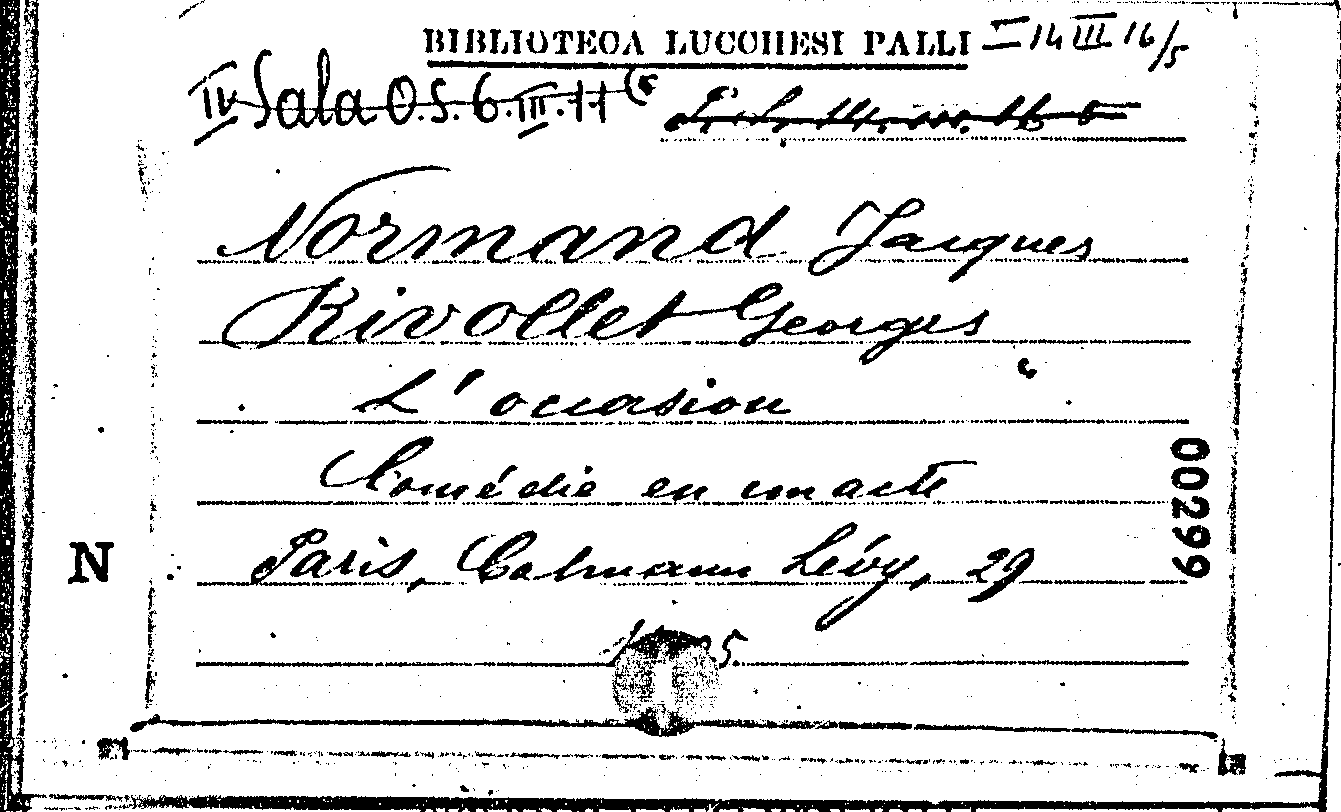 BIBLIOTECA LUCCHESI PALLI I 14 III 16/5
IV Sala O.S. 6.III.11 (5
Normand Jacques
Rivollet Georges
L'occasion
Comédie en un acte
Paris, Calmann Lévy, 29
00299
N